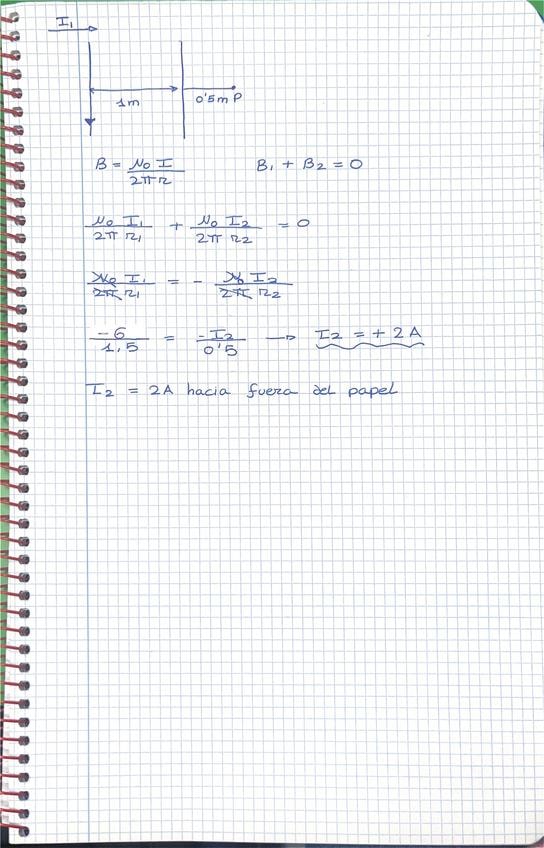 I₁
1m
0'5m P
B = μ₀ I / 2π r    B₁ + B₂ = 0
μ₀ I₁ / 2π r₁ + μ₀ I₂ / 2π r₂ = 0
μ₀ I₁ / 2π r₁ = - μ₀ I₂ / 2π r₂
-6 / 1,5 = -I₂ / 0'5 → I₂ = + 2A
I₂ = 2A hacia fuera del papel